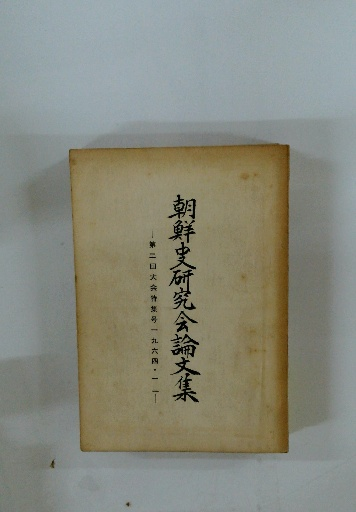 朝鮮史研究会論文集
—第二回大会特集号一九六四・一一—